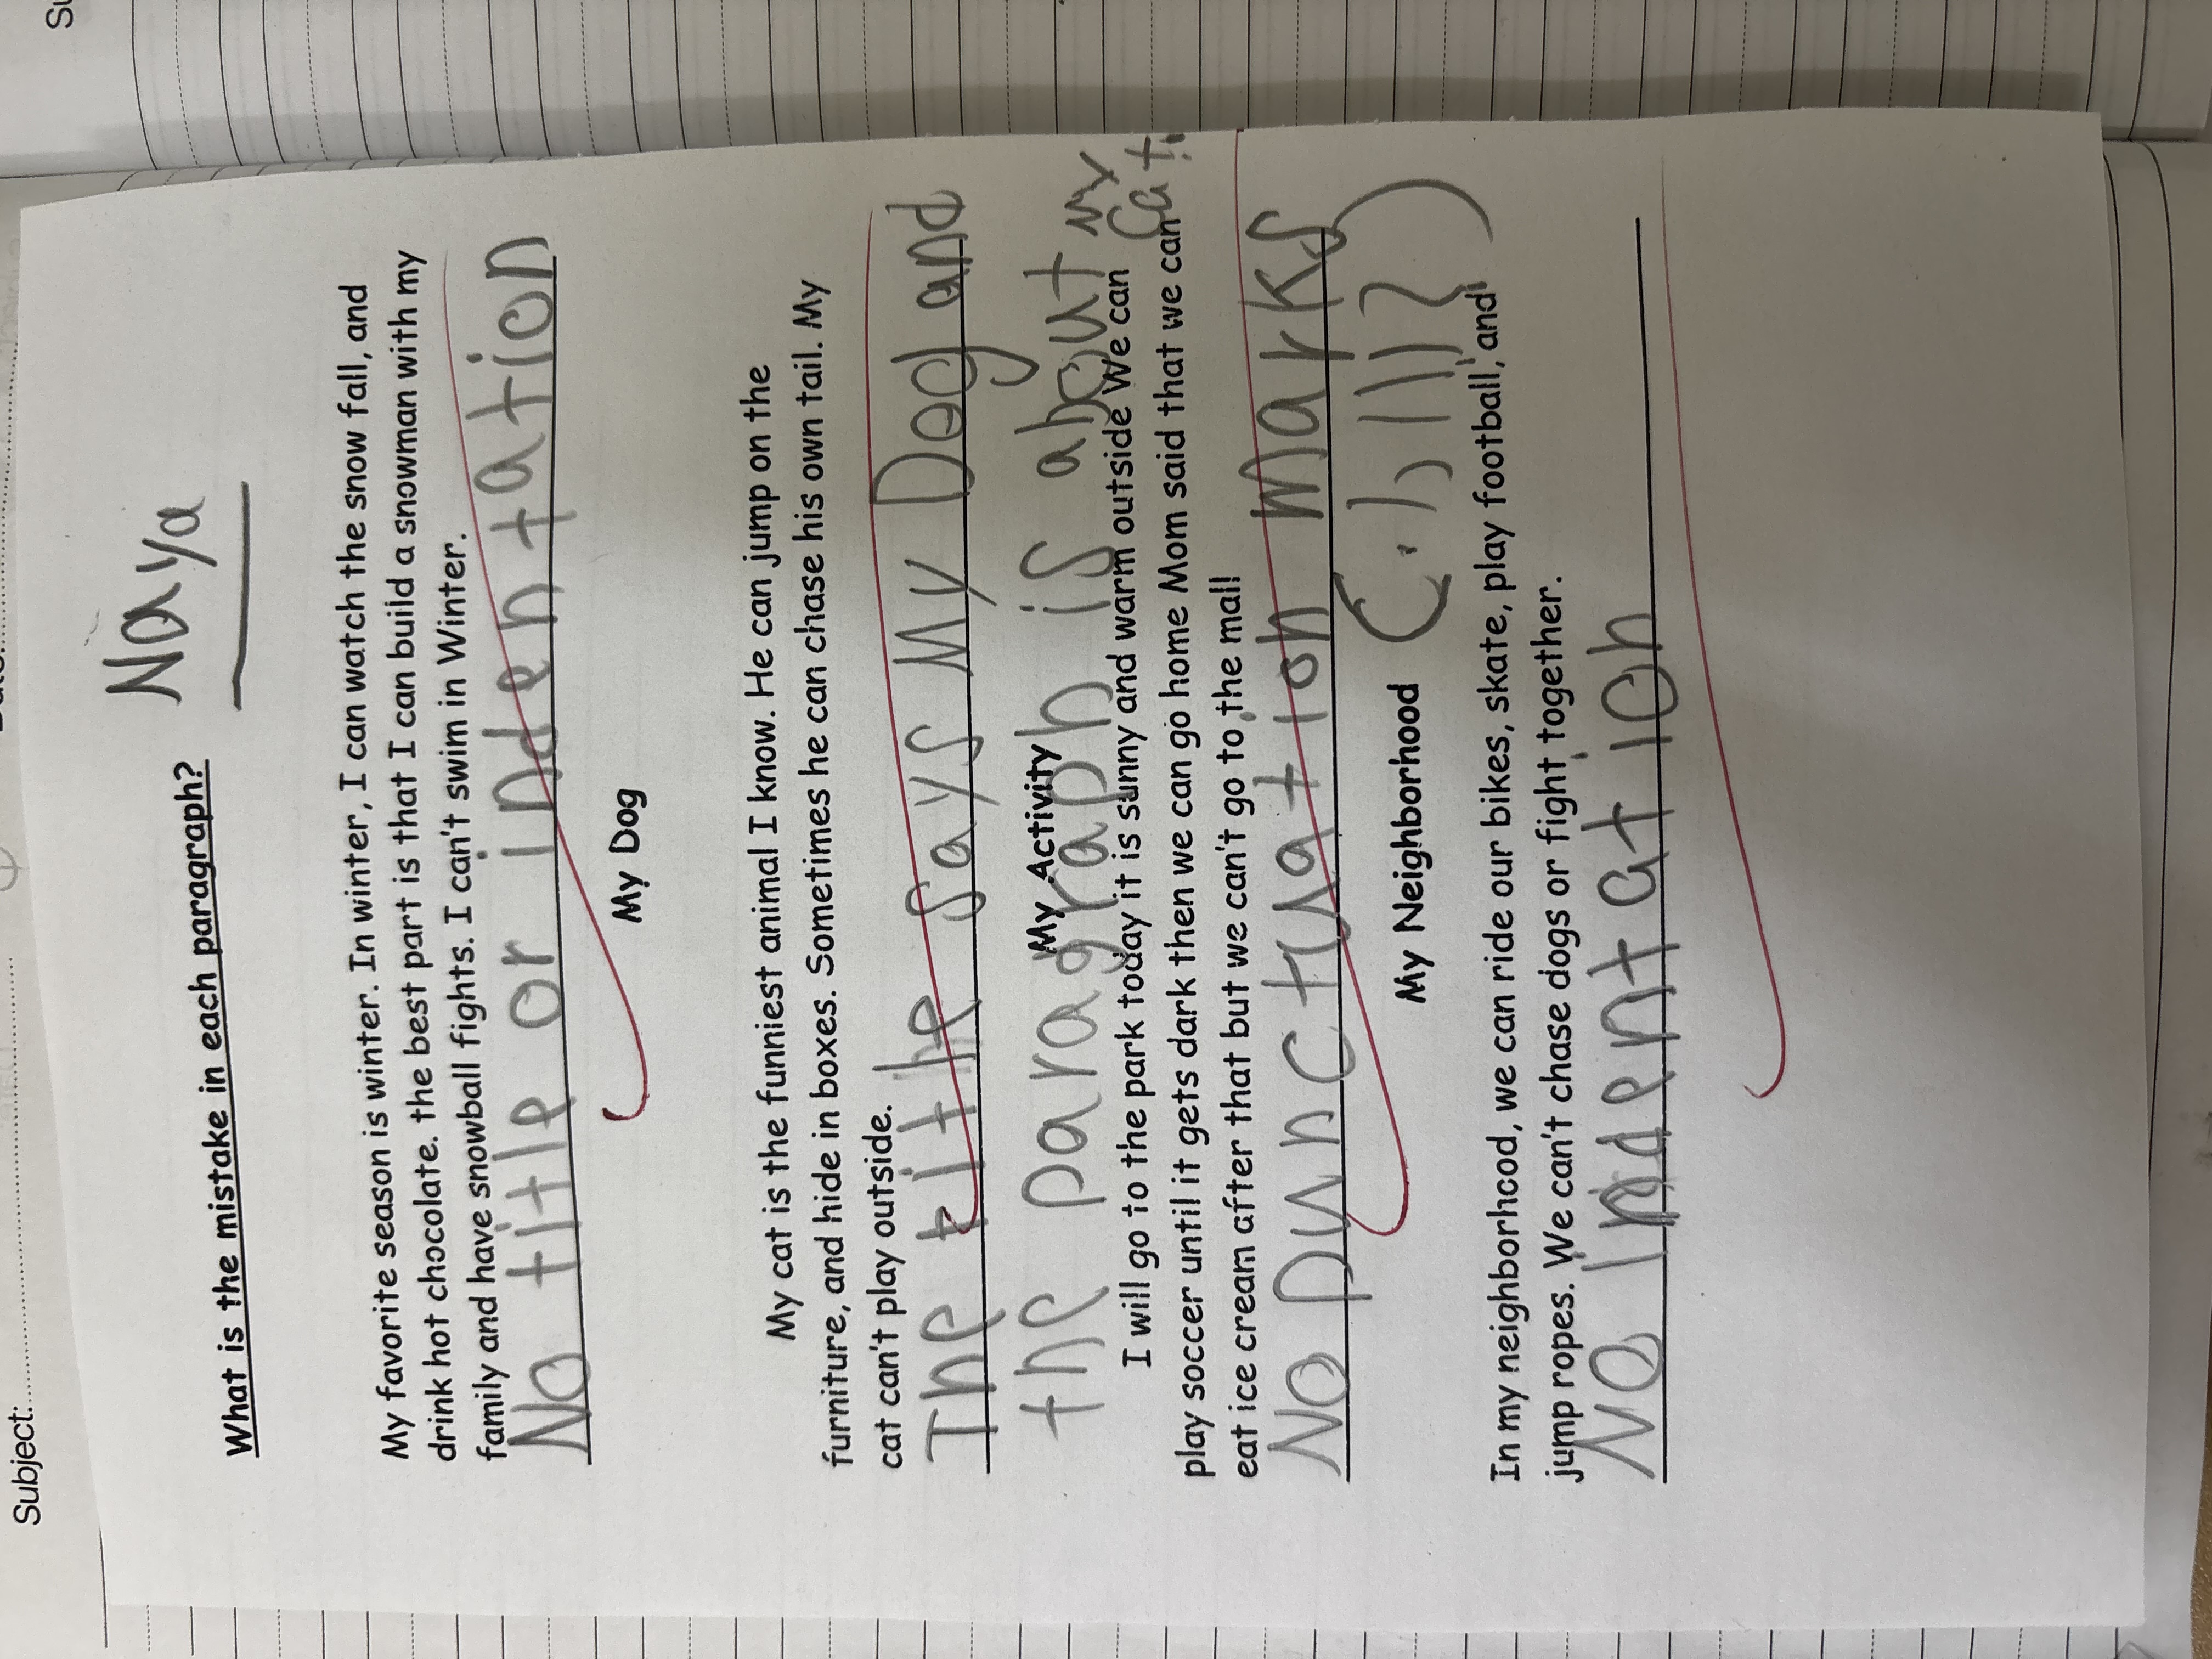 Subject:
Naya
What is the mistake in each paragraph?
My favorite season is winter. In winter, I can watch the snow fall, and
drink hot chocolate. the best part is that I can build a snowman with my
family and have snowball fights. I can't swim in Winter.
No title or indentation
My Dog
My cat is the funniest animal I know. He can jump on the
furniture, and hide in boxes. Sometimes he can chase his own tail. My
cat can't play outside.
The title says My Dog and
the paragraph is about my
cat.
My Activity
I will go to the park today it is sunny and warm outside We can
play soccer until it gets dark then we can go home Mom said that we can
eat ice cream after that but we can't go to the mall
No punctuation marks
(. , ! ?)
My Neighborhood
In my neighborhood, we can ride our bikes, skate, play football, and
jump ropes. We can't chase dogs or fight together.
No indentation